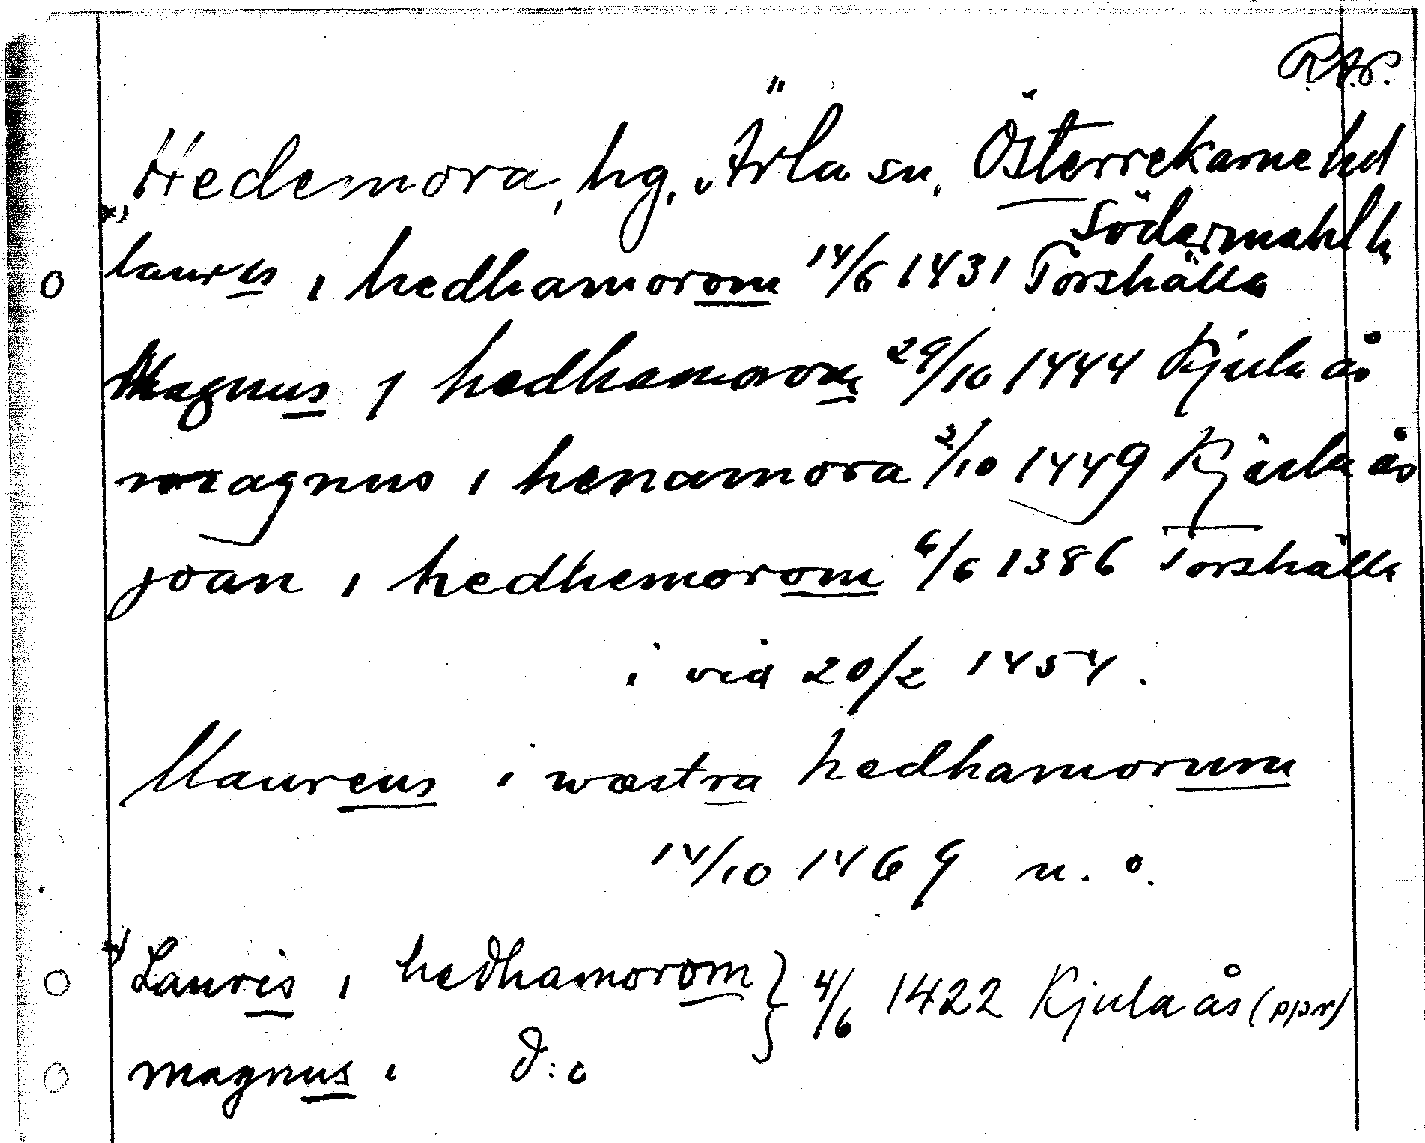 RAP.
Hedemora, hg, Ärla sn, Österrekarne hd
Södermanl. l.
x) laurꝭ i hedhamorom 14/6 1431 Torshälla
Magnus j hedhamorom 29/10 1444 Kjula ås
magnus i henamora 2/10 1449 Kjula ås
joan i hedhemorom 6/6 1386 Torshälla
i vid 20/2 1454.
laurens i wæstra hedhamorum
14/10 1469 u. o.
x) Lauris i hedhamorom } 4/6 1422 Kjula ås (ppr)
magnus i d:o